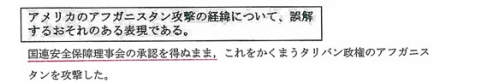 アメリカのアフガニスタン攻撃の経緯について、誤解
するおそれのある表現である。
国連安全保障理事会の承認を得ぬまま，これをかくまうタリバン政権のアフガニス
タンを攻撃した。